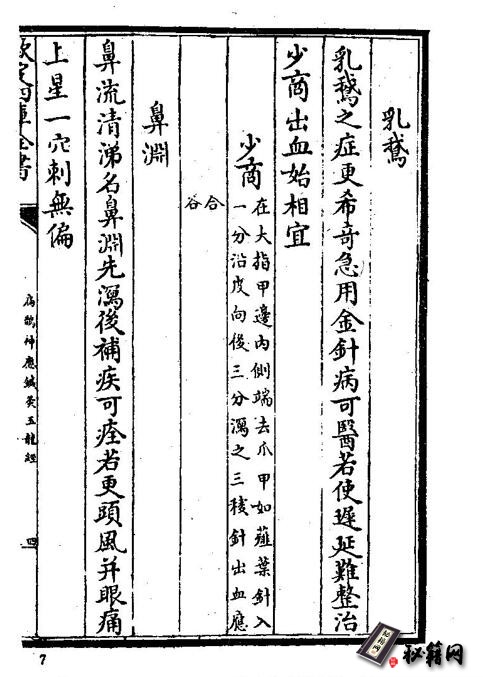 乳鵝
乳鵝之症更希竒急用金針病可醫若使遲延難整治
少商出血始相宜
少商
在大指甲邊內側端去爪甲如薤葉針入
一分沿皮向後三分瀉之三稜針出血應
合
谷
鼻淵
鼻流清涕名鼻淵先瀉後補疾可痊若更頭風并眼痛
上星一穴刺無偏
欽定四庫全書
扁鵲神應鍼灸玉龍經
四
7
秘籍网